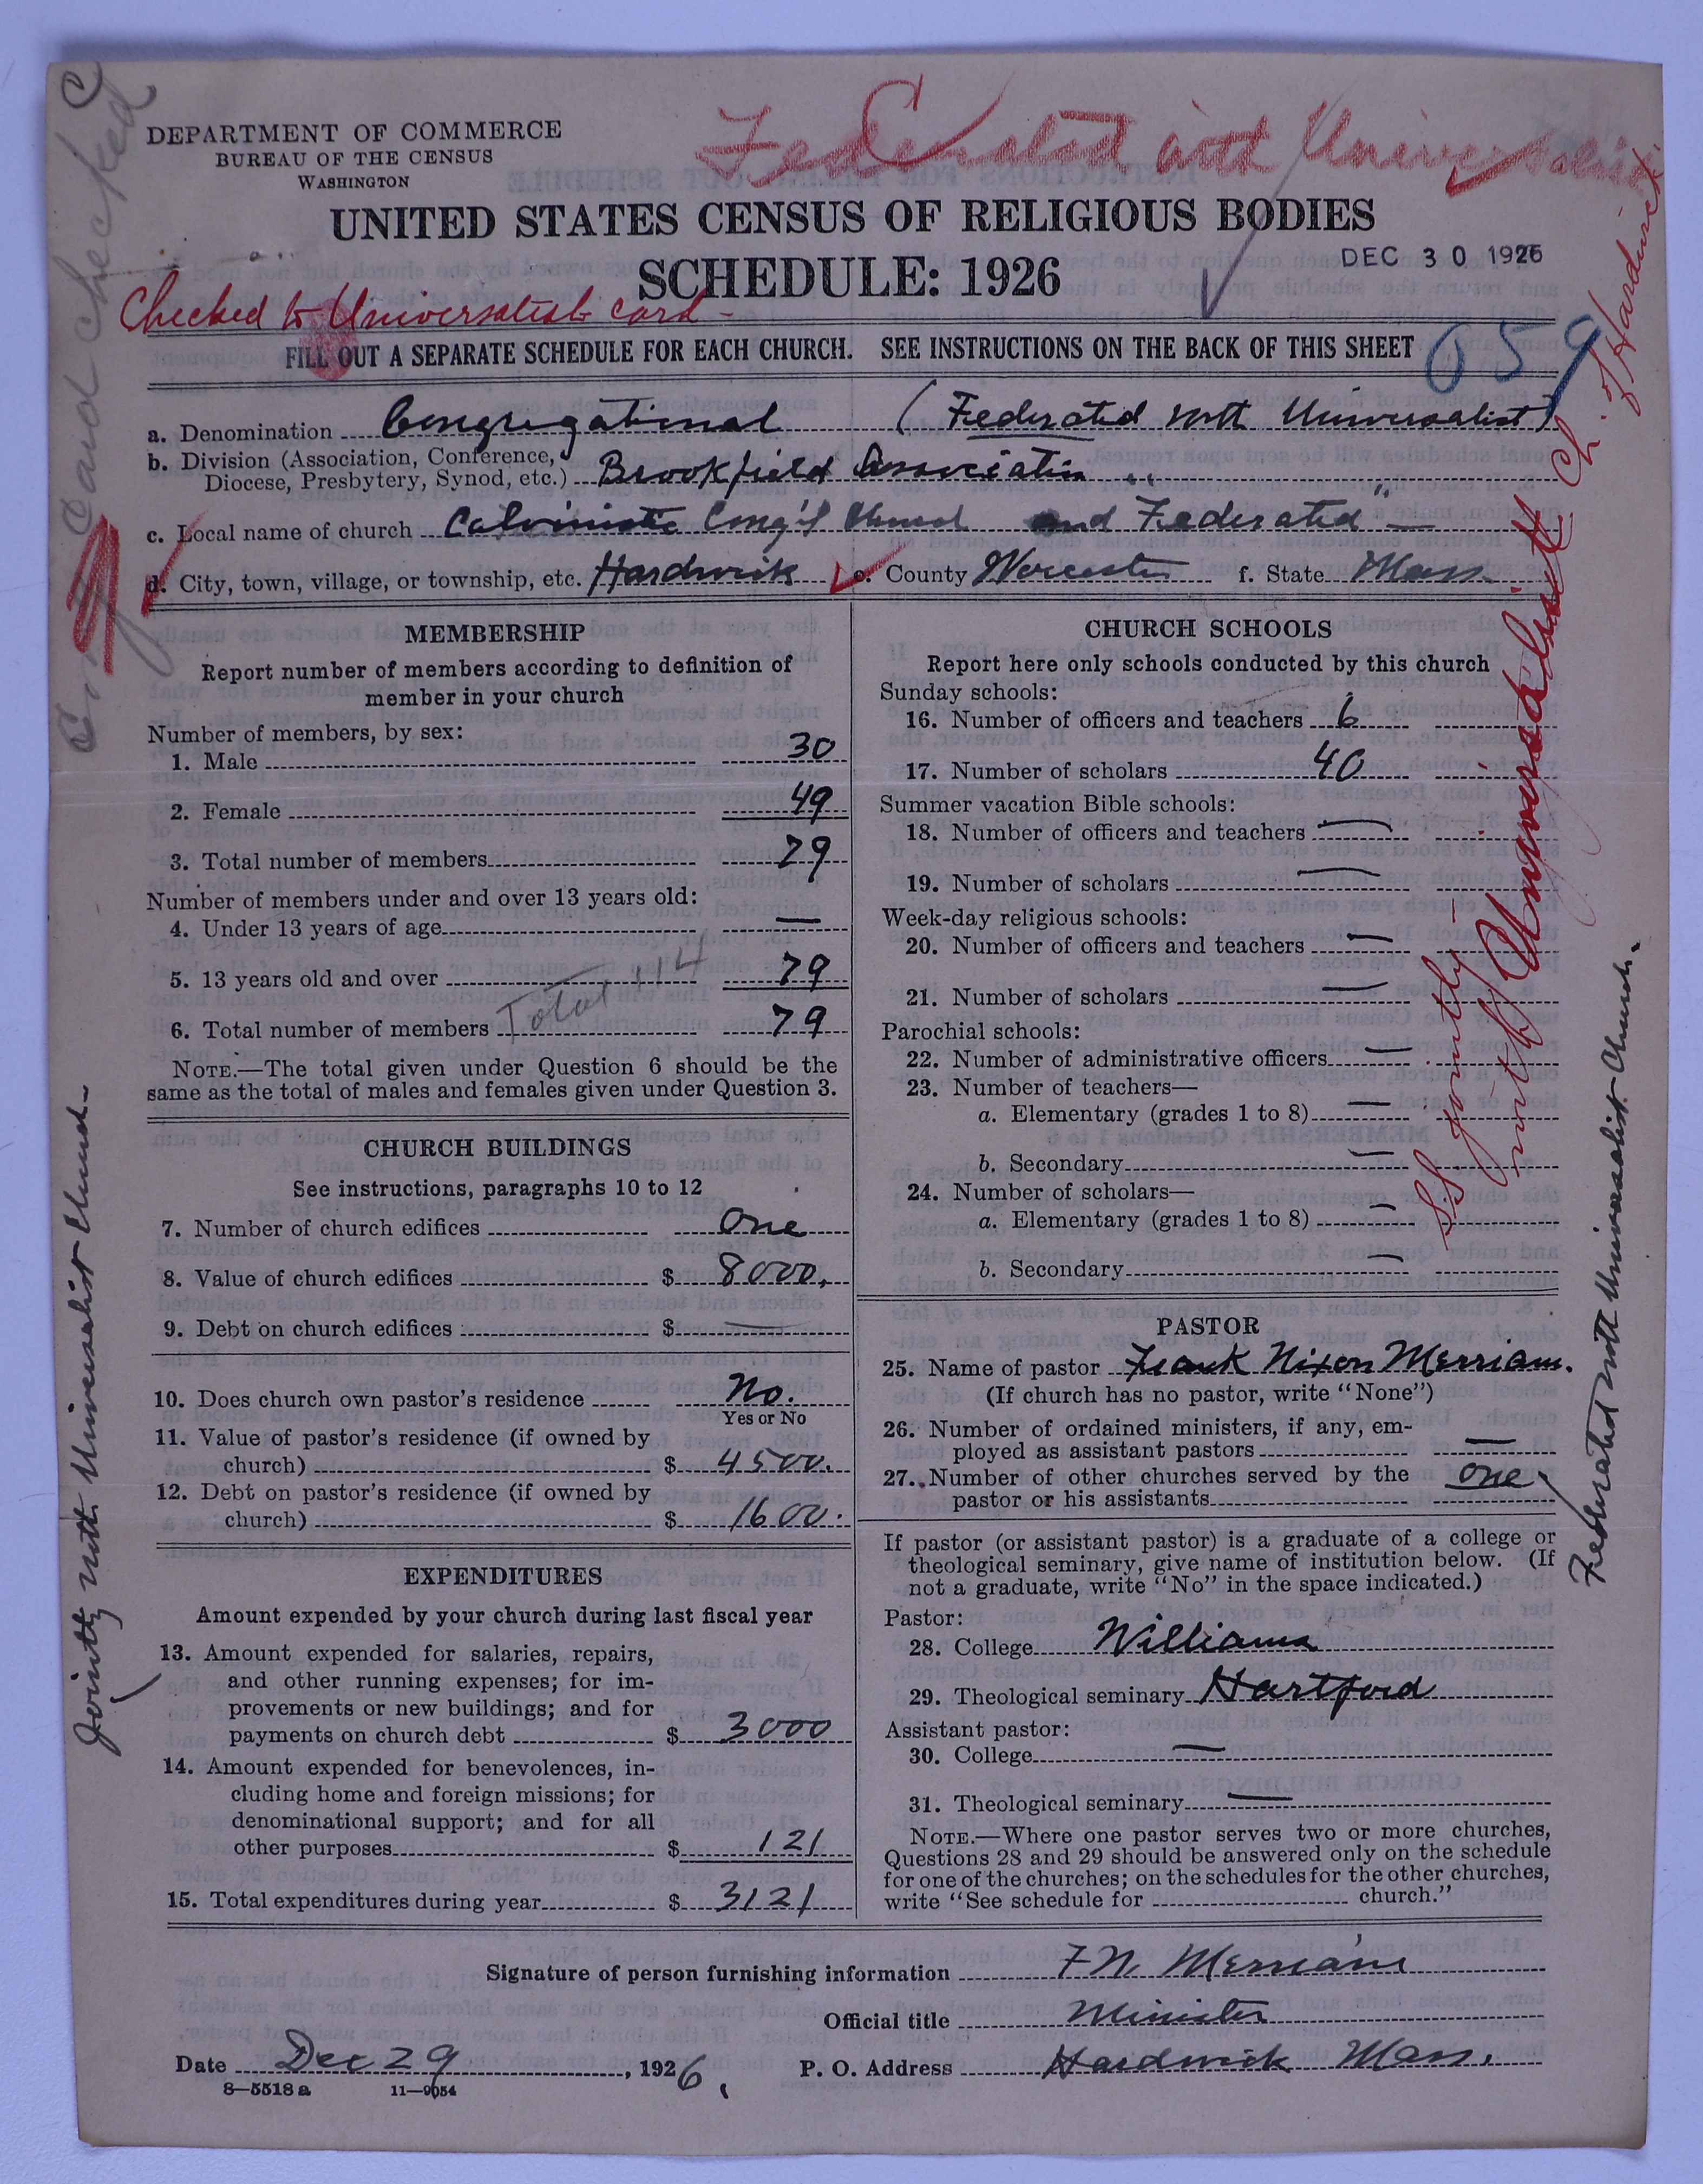 Federated with Universalist
DEPARTMENT OF COMMERCE
BUREAU OF THE CENSUS
WASHINGTON
UNITED STATES CENSUS OF RELIGIOUS BODIES
SCHEDULE: 1926
DEC 30 1926
Checked to Universalist card -
FILL OUT A SEPARATE SCHEDULE FOR EACH CHURCH. SEE INSTRUCTIONS ON THE BACK OF THIS SHEET
059
a. Denomination Congregational (Federated with Universalist)
b. Division (Association, Conference,
Diocese, Presbytery, Synod, etc.) Brookfield Association " "
c. Local name of church Calvinistic Cong'l Church and Federated —
d. City, town, village, or township, etc. Hardwick e. County Worcester f. State Mass.
MEMBERSHIP
Report number of members according to definition of
member in your church
Number of members, by sex:
1. Male 30
2. Female 49
3. Total number of members 79
Number of members under and over 13 years old:
4. Under 13 years of age —
5. 13 years old and over 79
Total 114
6. Total number of members 79
NOTE.—The total given under Question 6 should be the
same as the total of males and females given under Question 3.
CHURCH BUILDINGS
See instructions, paragraphs 10 to 12
7. Number of church edifices One
8. Value of church edifices $ 8000.
9. Debt on church edifices $ —
10. Does church own pastor's residence No.
Yes or No
11. Value of pastor's residence (if owned by
church) $ 4500.
12. Debt on pastor's residence (if owned by
church) $ 1600.
EXPENDITURES
Amount expended by your church during last fiscal year
13. Amount expended for salaries, repairs,
and other running expenses; for im-
provements or new buildings; and for
payments on church debt $ 3000
14. Amount expended for benevolences, in-
cluding home and foreign missions; for
denominational support; and for all
other purposes $ 121
15. Total expenditures during year $ 3121
CHURCH SCHOOLS
Report here only schools conducted by this church
Sunday schools:
16. Number of officers and teachers 6
17. Number of scholars 40
Summer vacation Bible schools:
18. Number of officers and teachers —
19. Number of scholars —
Week-day religious schools:
20. Number of officers and teachers —
21. Number of scholars —
Parochial schools:
22. Number of administrative officers —
23. Number of teachers—
a. Elementary (grades 1 to 8) —
b. Secondary —
24. Number of scholars—
a. Elementary (grades 1 to 8) —
b. Secondary —
PASTOR
25. Name of pastor Frank Nixon Merriam.
(If church has no pastor, write "None")
26. Number of ordained ministers, if any, em-
ployed as assistant pastors —
27. Number of other churches served by the
pastor or his assistants one
If pastor (or assistant pastor) is a graduate of a college or
theological seminary, give name of institution below. (If
not a graduate, write "No" in the space indicated.)
Pastor:
28. College Williams
29. Theological seminary Hartford
Assistant pastor:
30. College —
31. Theological seminary —
NOTE.—Where one pastor serves two or more churches,
Questions 28 and 29 should be answered only on the schedule
for one of the churches; on the schedules for the other churches,
write "See schedule for church."
Signature of person furnishing information F N Merriam
Official title Minister
Date Dec 29, 1926. P. O. Address Hardwick Mass.
8—5518a 11—9054
Card Checked C
Jointly with Universalist Church -
SS jointly -
with Universalist Ch. of Hardwick.
Federated with Universalist Church.